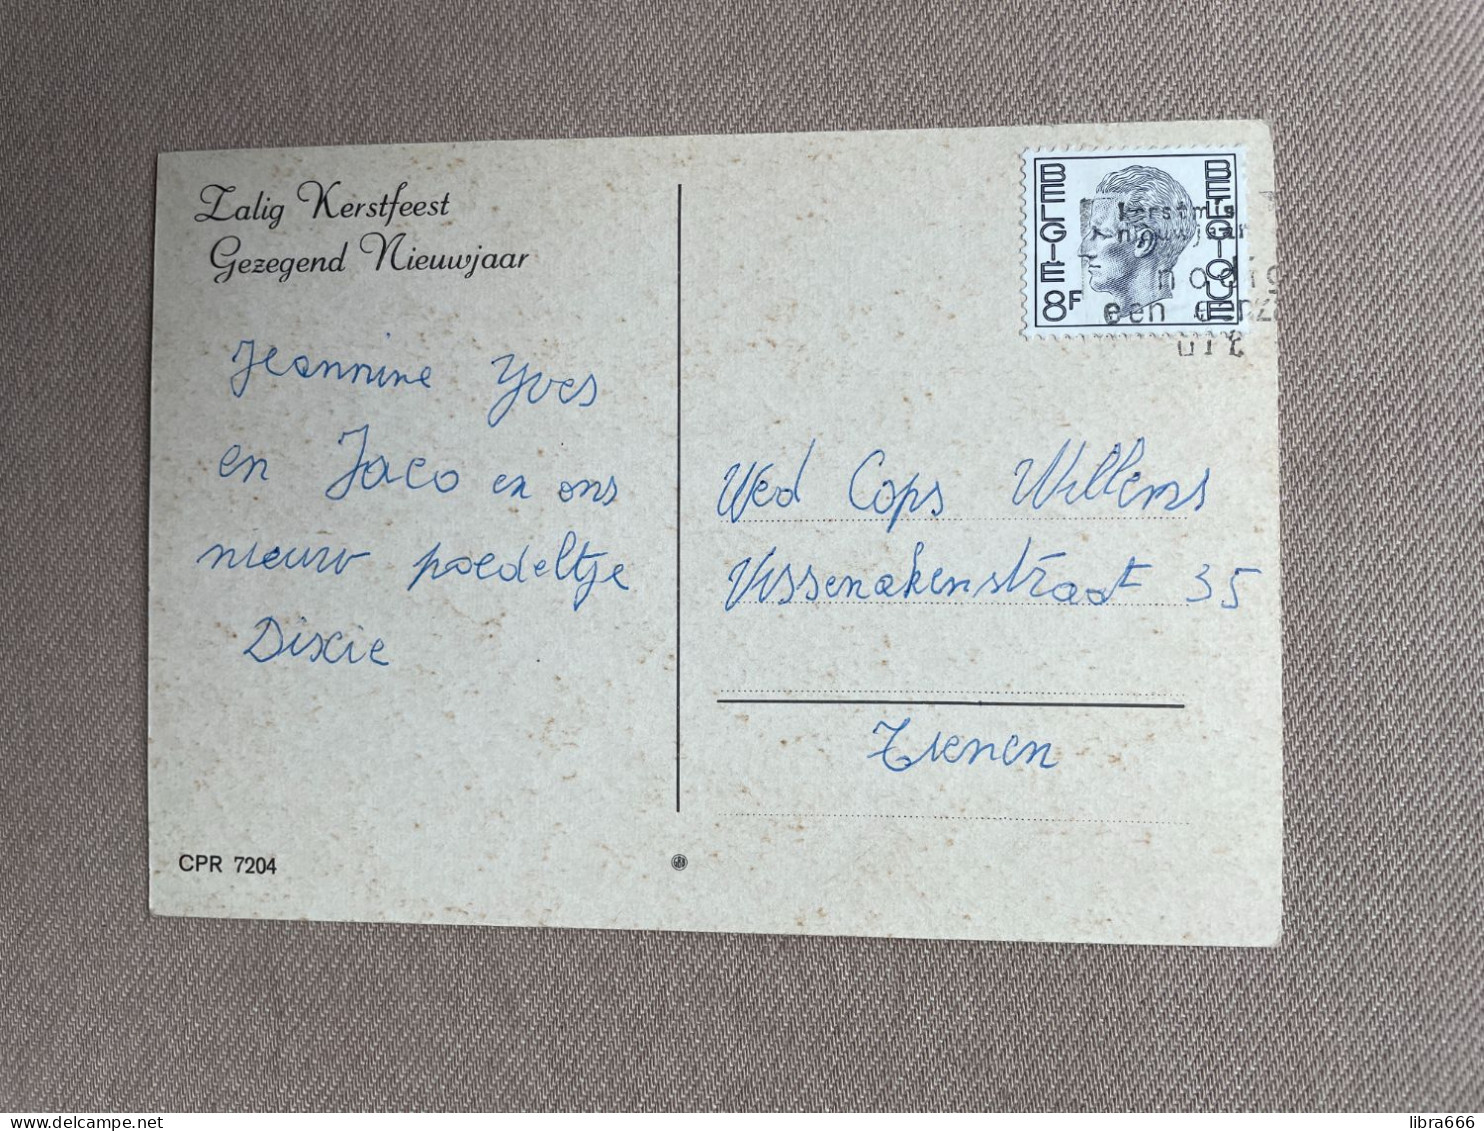 Zalig Kerstfeest
Gezegend Nieuwjaar
Jeannine Yves
en Jaco en ons
nieuw poedeltje
Dixie
CPR 7204
BELGIE
BELGIQUE
8F
kerstmis
nieuwjaar
nodig
een
uit
Wed Cops Willems
Vissenakenstraat 35
Tienen
libra666